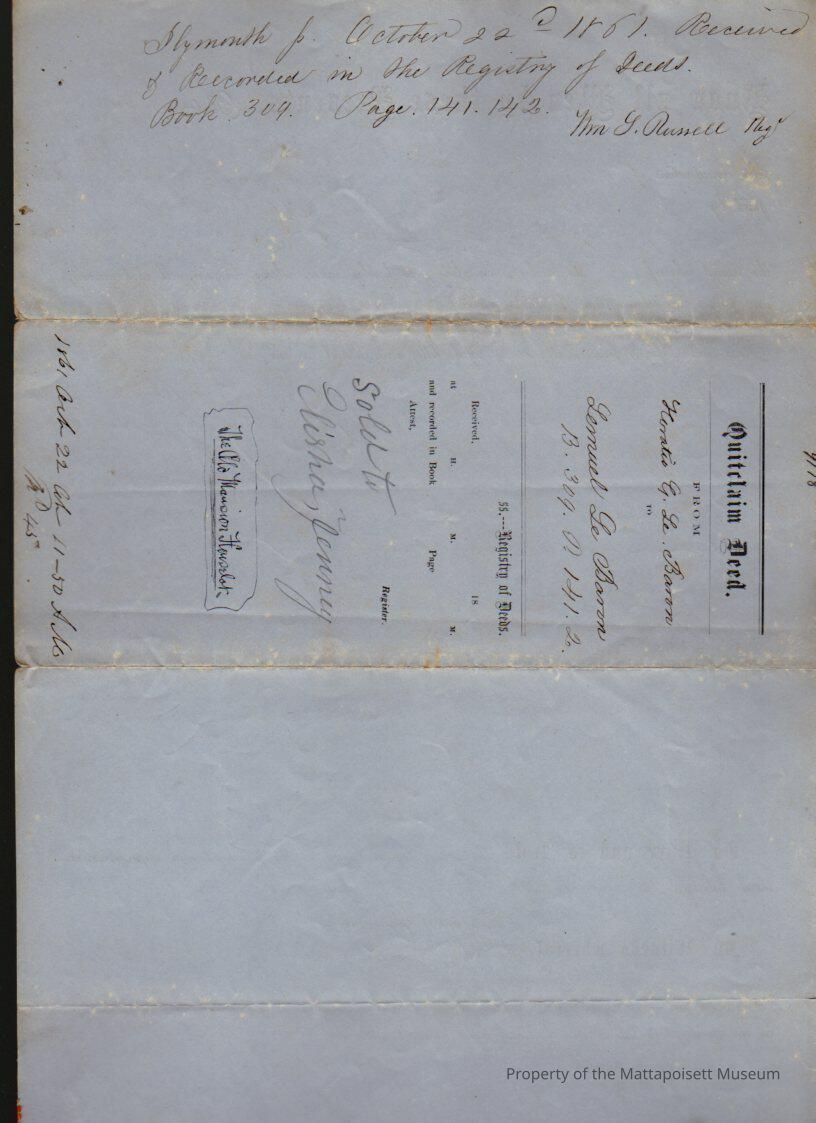 Plymouth ss. October 22d 1861. Received
& Recorded in the Registry of Deeds.
Book 309. Page. 141. 142.
Wm S. Russell Regr
Quitclaim Deed.
FROM
Horatio G. Le. Baron
TO
Lemuel Le Baron
B. 309. P 141. 2.
ss.---Registry of Deeds.
18
Received,
at H. M.
and recorded in Book Page M.
Attest,
Register.
Sold to
Elisha, Jenney
The Old Mansion Houselot
1861 Oct 22 at 11-50 A M
45
Property of the Mattapoisett Museum